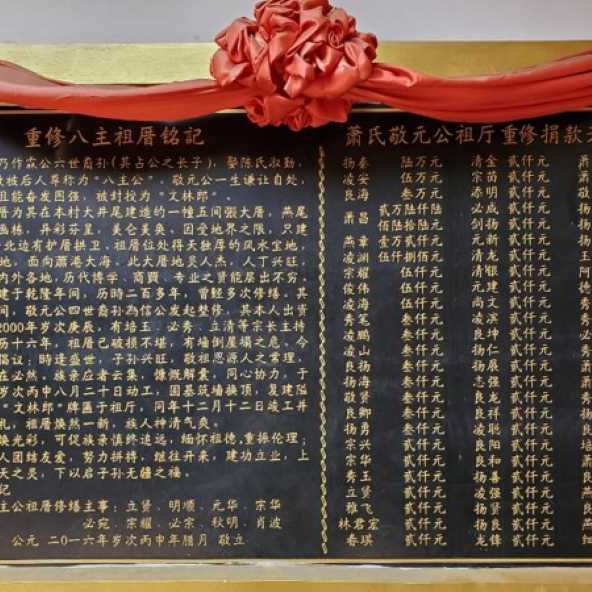 重修八主祖厝铭记
乃作肃公六世裔孙(其占公之长子)，娶陈氏淑勤，
故被后人尊称为“八主公”。敬元公一生谦让自处，
且能奋发图强，被封授为“文林郎”。
厝为其在本村大井尾建造的一幢五间張大厝，燕尾
画栋，异彩芬呈，美仑美奂，因受地界之限，只建
北边有护厝拱卫，祖厝位处得天独厚的风水宝地，
地，面向萧港大海，此大厝地灵人杰，人丁兴旺，
内外各地，历代博学、商贾、专业之贤能层出不穷
建于乾隆年间，历時二百多年，曾经多次修缮。其
间，敬元公四世裔孙為信公发起整修，其本人出资
2000年岁次庚辰，有培玉、必秀、立清等宗长主持
历十六年，祖厝已破損不堪，有墙倒屋塌之危。今
倡议；時逢盛世，子孙兴旺，敬祖恩源人之常理，
在必然。族亲应者云集，慷慨解囊，同心协力，于
岁次丙申八月二十日动工，固基筑墙换顶，复建隘
“文林郎”牌匾于祖厅，同年十二月十二日竣工并
礼，祖厝焕然一新，族人神清气爽。
焕光彩，可促族亲慎终追远，缅怀祖德，重振伦理；
人团结友爱，努力拼搏，继往开来，建功立业，上
天之灵，下以启子孙无疆之福。
记
主公祖厝修缮主事：立贤、明顺、元华、宗华
必宛、宗耀、必宗、秋明、肖波
公元 二〇一六年岁次丙申年腊月 敬立
萧氏敬元公祖厅重修捐款
扬泰 陆万元 清金 贰仟元 萧
凌安 伍万元 宗苗 贰仟元
良海 叁万元 添明 贰仟元
萧昌 贰万陆仟陆 必成 贰仟元
佰陆拾陆元 剑扬 贰仟元
燕章 壹万贰仟元 元新 贰仟元
凌渊 伍仟捌佰元 清龙 贰仟元 王
宗耀 伍仟元 清银 贰仟元 阿
俊伟 伍仟元 元建 贰仟元
凌海 伍仟元 尚文 贰仟元 秀
秀笔 叁仟元 凌滨 贰仟元
凌鹏 叁仟元 良坤 贰仟元 必
凌山 叁仟元 扬仁 贰仟元
良扬 叁仟元 扬辰 贰仟元
扬海 叁仟元 志强 贰仟元
敬贤 叁仟元 良龙 贰仟元
良卿 叁仟元 良祥 贰仟元
扬勇 贰仟元 凌聪 贰仟元
宗兴 贰仟元 良阳 贰仟元
宗华 贰仟元 良和 贰仟元 萧
秀玉 贰仟元 扬喜 贰仟元
立贤 贰仟元 凌强 贰仟元
雄飞 贰仟元 扬贤 贰仟元
林君宏 贰仟元 扬良 贰仟元
春琪 贰仟元 龙锋 贰仟元